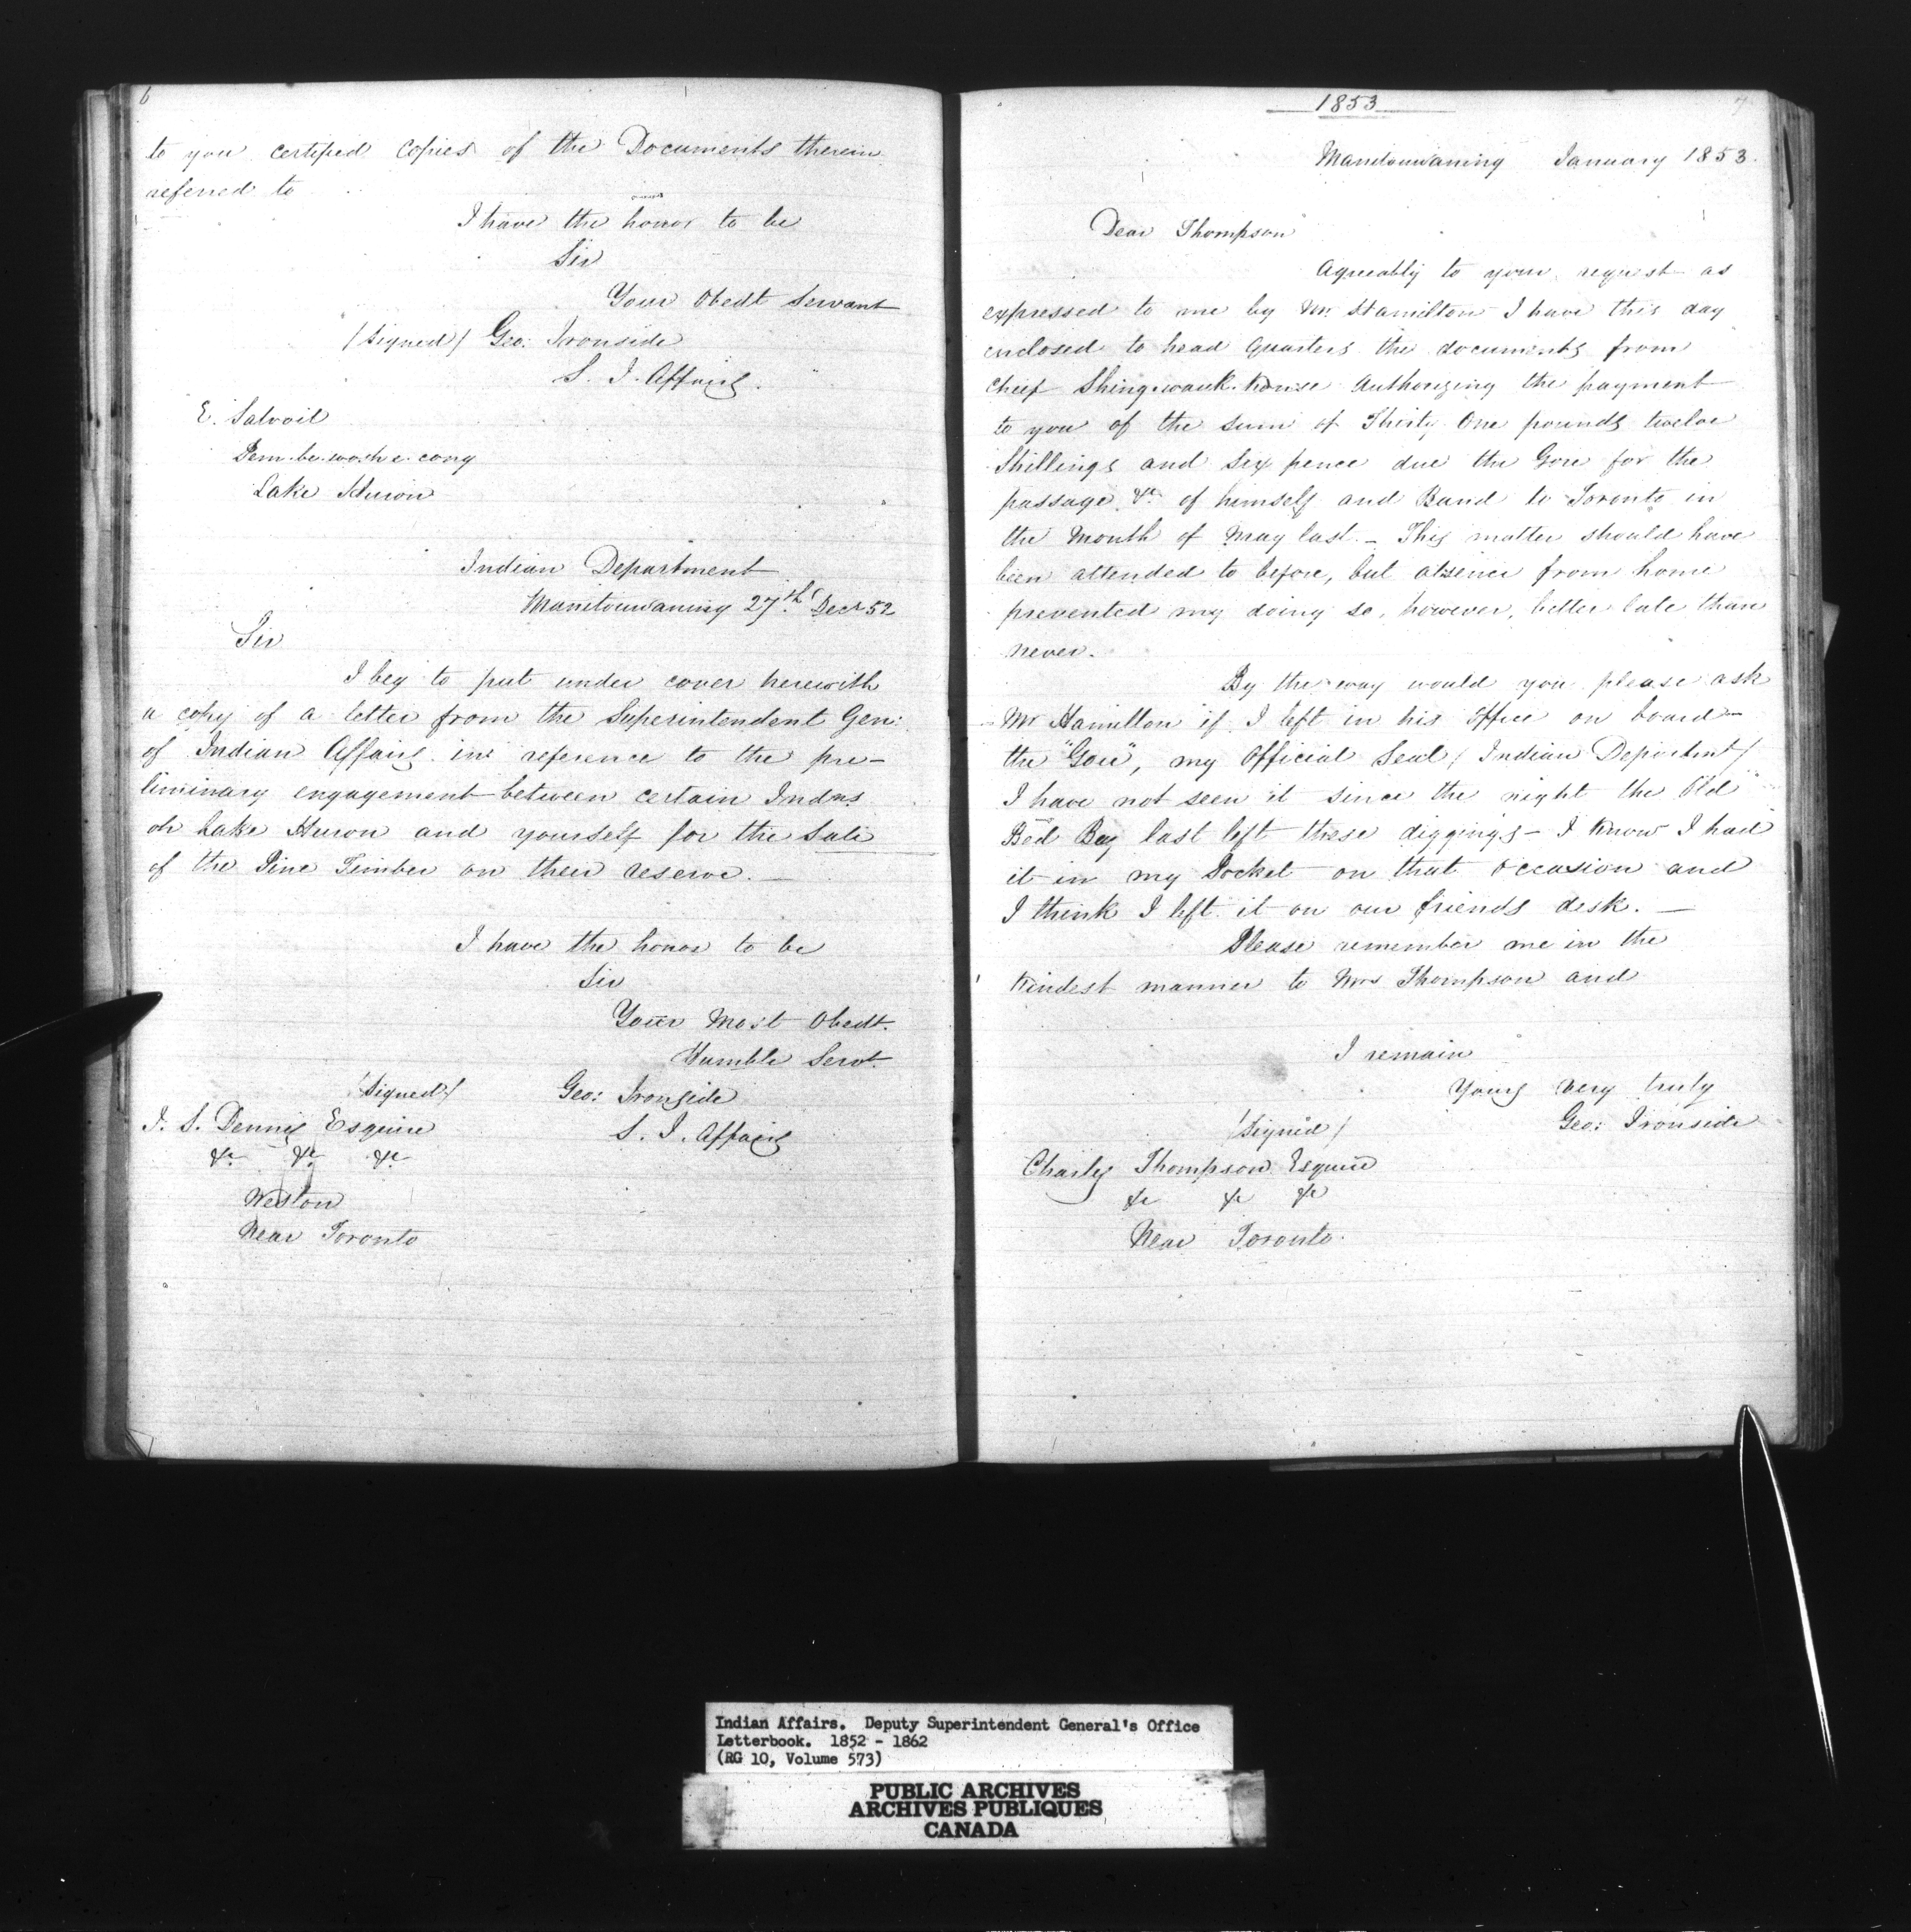 6
to you certified copies of the Documents therein
referred to
I have the honor to be
Sir
Your Obedt Servant
/Signed/ Geo: Ironside
S. I. Affairs.
E. Salvoil
Pem.be.wosh e. cong
Lake Huron
Indian Department
Manitouwaning 27th Decr 52
Sir
I beg to put under cover herewith
a copy of a letter from the Superintendent Gen:
of Indian Affairs in reference to the pre-
liminary engagement between certain Indns
on Lake Huron and yourself for the Sale
of the Pine Timber on their reserve. —
I have the honor to be
Sir
Your Most Obedt.
Humble Servt.
/Signed/ Geo: Ironside
S. I. Affairs
J. S. Dennis Esquire
&c &c &c
Weston
Near Toronto
1853
7
Manitouwaning January 1853.
Dear Thompson
Agreeably to your request as
expressed to me by Mr. Hamilton I have this day
enclosed to head Quarters the documents from
Chief Shing.wauk.konse Authorizing the payment
to you of the sum of Thirty One pounds twelve
Shillings and six pence due the Gore for the
passage &c of himself and Band to Toronto in
the Month of May last. - This matter should have
been attended to before, but absence from home
prevented my doing so, however, better late than
never.
By the way would you please ask
Mr Hamilton if I left in his Office on board
the "Gore", my Official Seal / Indian Departmt /
I have not seen it since the night the Old
Boy last left these diggings - I know I had
it in my Pocket on that occasion and
I think I left it on our friends desk. —
Please remember me in the
kindest manner to Mrs Thompson and
I remain
Yours very truly
/Signed/ Geo: Ironside
Charles Thompson Esquire
&c &c &c
Near Toronto.
Indian Affairs. Deputy Superintendent General's Office
Letterbook. 1852 - 1862
(RG 10, Volume 573)
PUBLIC ARCHIVES
ARCHIVES PUBLIQUES
CANADA